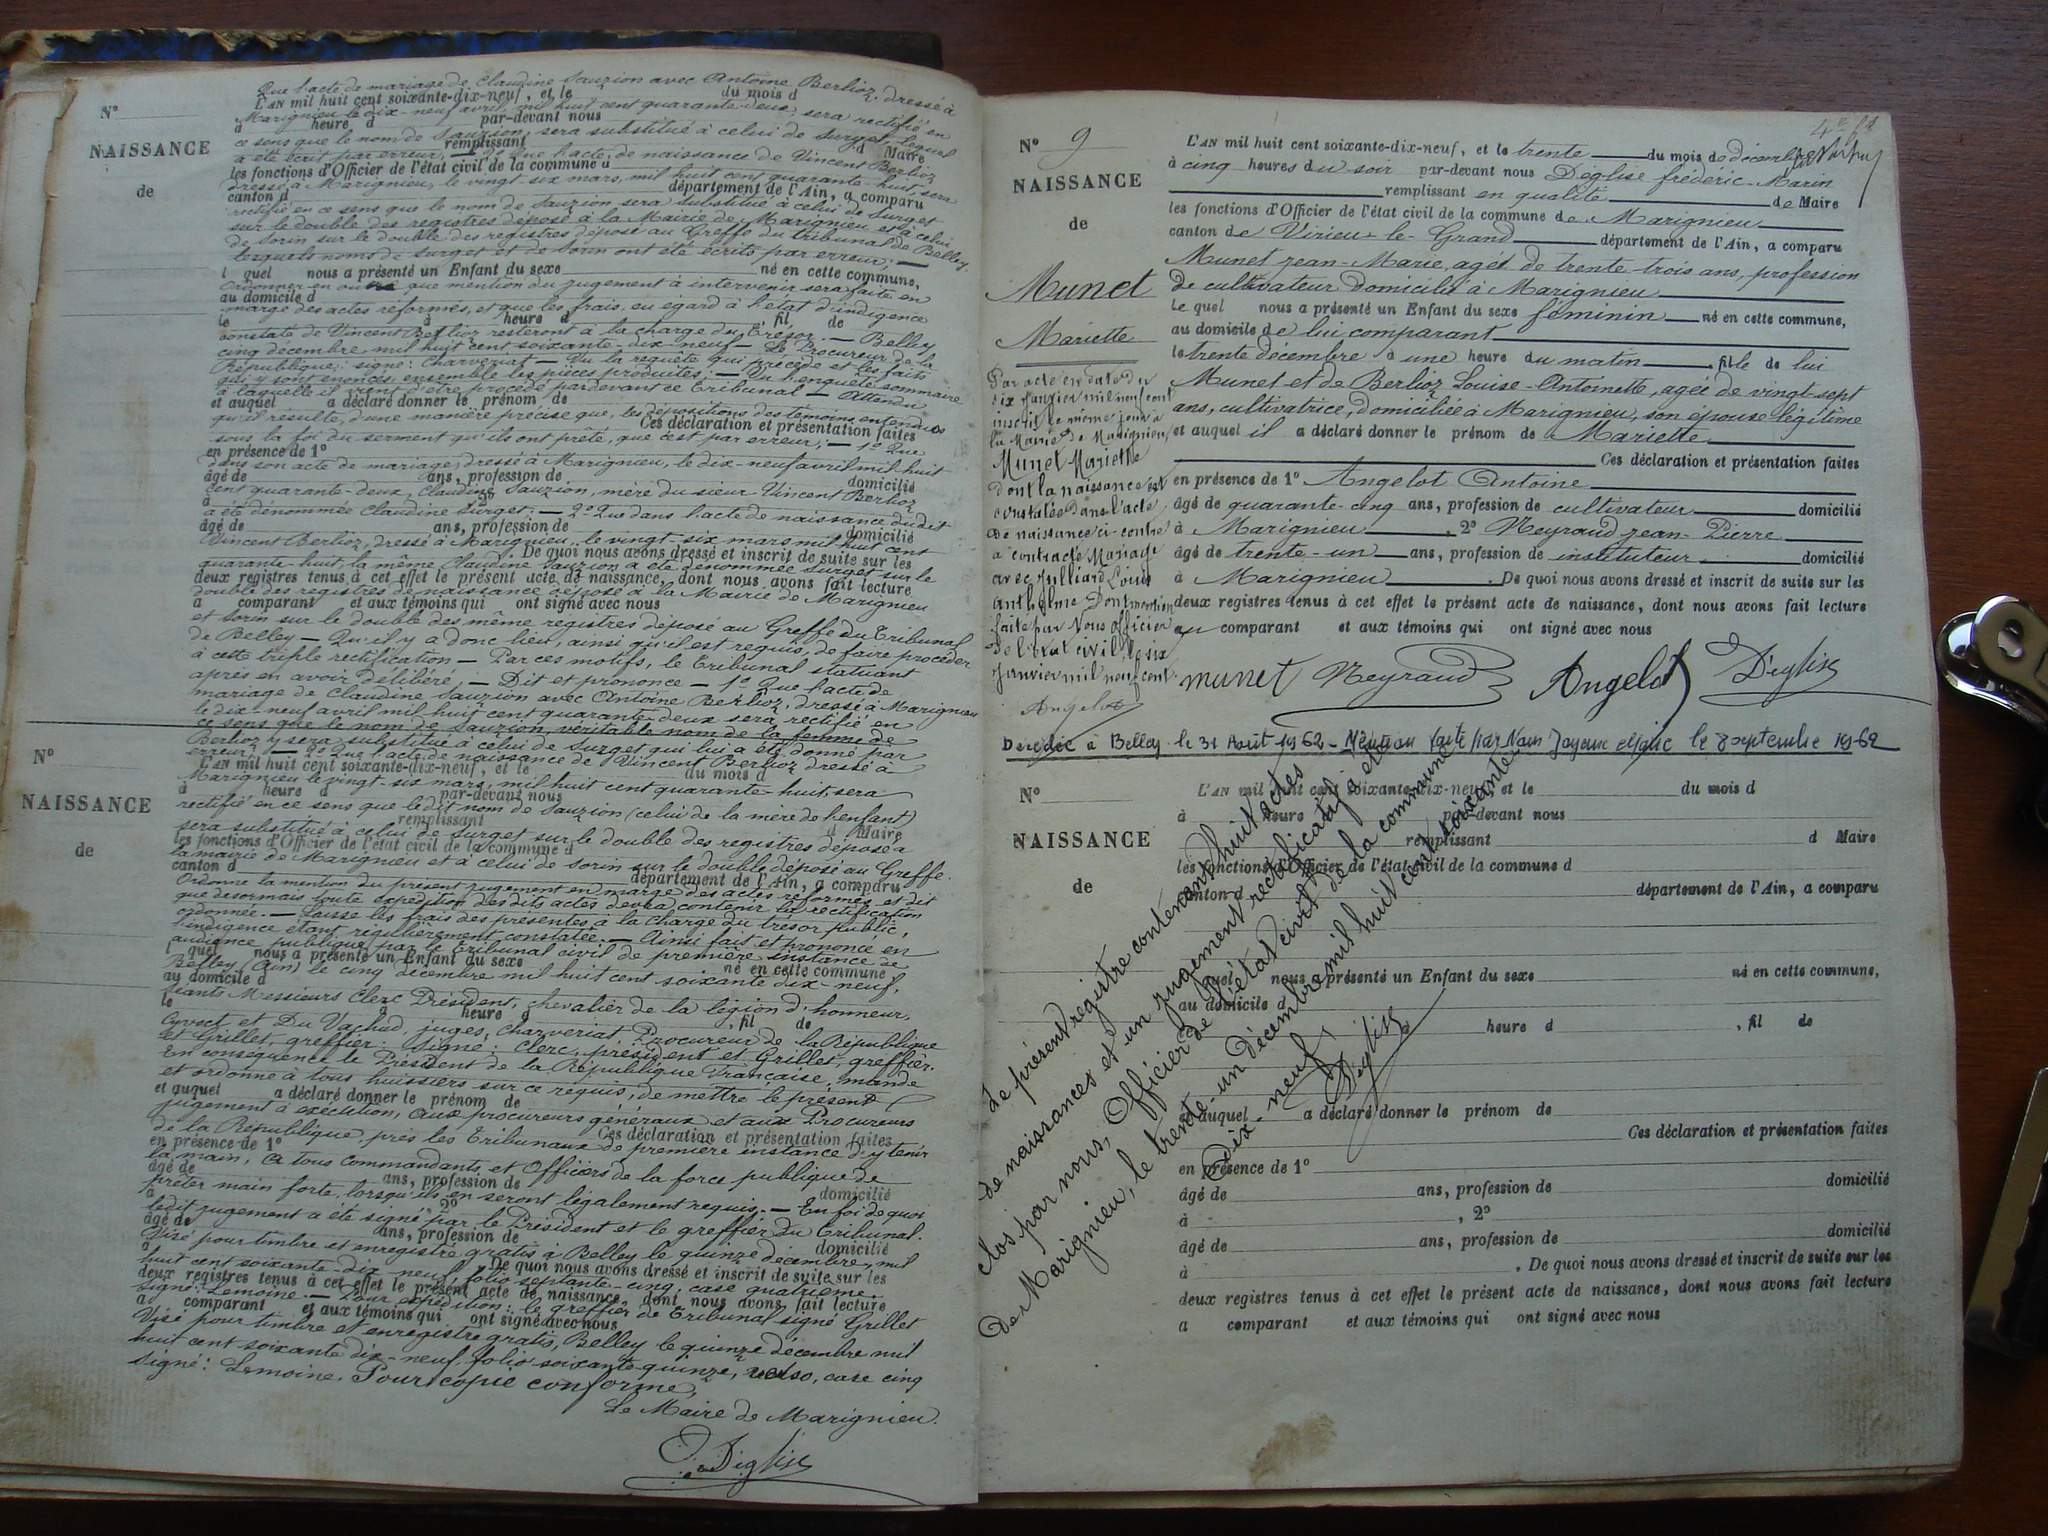 Que l'acte de mariage de Claudine Sauzion avec Antoine Berlioz, dressé à
N° L'AN mil huit cent soixante-dix-neuf, et le du mois d
Marignieu le dix-neuf avril mil huit cent quarante-deux, sera rectifié en
à heure d par-devant nous
ce sens que le nom de Sauzion sera substitué à celui de Surget lequel
NAISSANCE
remplissant d Maire
a été écrit par erreur; que l'acte de naissance de Vincent Berlioz
les fonctions d'Officier de l'état civil de la commune d
de
dressé à Marignieu, le vingt-six mars, mil huit cent quarante-huit, sera
canton d département de l'Ain, a comparu
rectifié en ce sens que le nom de Sauzion sera substitué à celui de Surget
sur le double des registres déposé à la Mairie de Marignieu et à celui
de Sorin sur le double des registres déposé au Greffe du tribunal de Belley,
lesquels noms de Surget et de Sorin ont été écrits par erreur; —
l quel nous a présenté un Enfant du sexe né en cette commune,
Ordonner en outre que mention du jugement à intervenir sera faite en
au domicile d
marge des actes réformés, et que les frais, eu égard à l'état d'indigence
le à heure d , fil de
constaté de Vincent Berlioz resteront à la charge du Trésor. — Belley
cinq décembre mil huit cent soixante-dix-neuf — Le Procureur de la
République; signé: Charveriat — Vu la requête qui précède et les faits
qui y sont énoncés ensemble les pièces produites; — Vu l'enquête sommaire
à laquelle il vient d'être procédé pardevant ce tribunal — Attendu
et auquel a déclaré donner le prénom de
qu'il résulte, d'une manière précise que, les dépositions des témoins entendus
Ces déclaration et présentation faites
sous la foi du serment qu'ils ont prêté, que c'est par erreur; — 1° Que
en présence de 1°
dans son acte de mariage, dressé à Marignieu, le dix-neuf avril mil huit
âgé de ans, profession de domicilié
cent quarante-deux, Claudine Sauzion, mère du sieur Vincent Berlioz
à 2°
a été dénommée Claudine Surget; — 2° Que dans l'acte de naissance dudit
âgé de ans, profession de domicilié
Vincent Berlioz, dressé à Marignieu, le vingt-six mars mil huit cent
à . De quoi nous avons dressé et inscrit de suite sur les
quarante-huit, la même Claudine Sauzion a été dénommée Surget sur le
deux registres tenus à cet effet le présent acte de naissance, dont nous avons fait lecture
double des registres de naissance déposé à la Mairie de Marignieu
a comparant et aux témoins qui ont signé avec nous
et Sorin sur le double des même registres déposé au Greffe du Tribunal
de Belley — Qu'il y a donc lieu, ainsi qu'il est requis, de faire procéder
à cette triple rectification — Par ces motifs, le Tribunal statuant
après en avoir délibéré; — Dit et prononce — 1° Que l'acte de
mariage de Claudine Sauzion avec Antoine Berlioz, dressé à Marignieu
le dix-neuf avril mil huit cent quarante-deux sera rectifié en
ce sens que le nom de Sauzion, véritable nom de la femme de
Berlioz y sera substitué à celui de Surget qui lui a été donné par
N° erreur; — 2° Que l'acte de naissance de Vincent Berlioz dressé à
L'AN mil huit cent soixante-dix-neuf, et le du mois d
Marignieu le vingt-six mars, mil huit cent quarante-huit, sera
à heure d par-devant nous
NAISSANCE
rectifié en ce sens que ledit nom de Sauzion (celui de la mère de l'enfant)
remplissant d Maire
sera substitué à celui de Surget sur le double des registres déposé à
les fonctions d'Officier de l'état civil de la commune d
de
la mairie de Marignieu et à celui de Sorin sur le double déposé au Greffe.
canton d département de l'Ain, a comparu
Ordonne la mention du présent jugement en marge des actes réformés et dit
que désormais toute expédition desdits actes devra contenir la rectification
ordonnée. — Laisse les frais des présentes à la charge du trésor public,
l'indigence étant régulièrement constatée. — Ainsi fait et prononcé en
audience publique par le Tribunal civil de première instance de
l quel nous a présenté un Enfant du sexe né en cette commune
Belley (Ain) le cinq décembre mil huit cent soixante dix-neuf,
au domicile d
séants Messieurs Clerc Président, chevalier de la légion d'honneur,
le à heure d , fil de
et Du Vachat, juges, Charveriat Procureur de la République
et Grillet, greffier. Signé: Clerc, président et Grillet, greffier.
En conséquence le Président de la République Française, mande
et ordonne à tous huissiers sur ce requis, de mettre le présent
et auquel a déclaré donner le prénom de
jugement à exécution, aux procureurs généraux et aux Procureurs
Ces déclaration et présentation faites
de la République près les Tribunaux de première instance d'y tenir
en présence de 1°
la main, à tous commandants et Officiers de la force publique de
âgé de ans, profession de domicilié
prêter main forte, lorsqu'ils en seront légalement requis. — En foi de quoi
à 2°
ledit jugement a été signé par le Président et le greffier du Tribunal.
âgé de ans, profession de domicilié
Visé pour timbre et enregistré gratis à Belley le quinze décembre mil
à . De quoi nous avons dressé et inscrit de suite sur les
huit cent soixante dix-neuf, folio septante-cinq, case quatrième.
deux registres tenus à cet effet le présent acte de naissance, dont nous avons fait lecture
Signé: Lemoine. — Pour expédition: le greffier de Tribunal signé Grillet
a comparant et aux témoins qui ont signé avec nous
Visé pour timbre et enregistré gratis, Belley le quinze décembre mil
huit cent soixante dix-neuf, folio soixante-quinze, verso, case cinq
Signé: Lemoine. Pour copie conforme,
Le Maire de Marignieu.
Déglise
N° 9
NAISSANCE
de
Munet
Mariette
L'AN mil huit cent soixante-dix-neuf, et le trente du mois de décembre
à cinq heures du soir par-devant nous Déglise frédéric-Marin
remplissant en qualité de Maire
les fonctions d'Officier de l'état civil de la commune de Marignieu
canton de Virieu-le-Grand département de l'Ain, a comparu
Munet jean-Marie, agés de trente-trois ans, profession
de cultivateur domicilié à Marignieu
Le quel nous a présenté un Enfant du sexe féminin né en cette commune,
au domicile de lui comparant
le trente décembre à une heure du matin , fille de lui
Munet et de Berlioz Louise-Antoinette, agée de vingt-sept
ans, cultivatrice, domiciliée à Marignieu, son épouse légitime
et auquel il a déclaré donner le prénom de Mariette
Ces déclaration et présentation faites
en présence de 1° Angelot Antoine
âgé de quarante-cinq ans, profession de cultivateur domicilié
à Marignieu , 2° Meyraud jean-Pierre
âgé de trente-un ans, profession de instituteur domicilié
à Marignieu . De quoi nous avons dressé et inscrit de suite sur les
deux registres tenus à cet effet le présent acte de naissance, dont nous avons fait lecture
au comparant et aux témoins qui ont signé avec nous
munet Meyraud Angelot Déglise
Par acte en date du
six Janvier mil neuf cent
inscrit le même jour à
la Mairie de Marignieu
Munet Mariette
dont la naissance est
constatée dans l'acte
de naissance ci-contre
a contracté Mariage
avec Julliard Louis
Anthelme Dont mention
faite par Nous officier
de l'Etat civil, le six
Janvier mil neuf cent.
Angelot
Décédée à Belley le 31 Août 1962 - Mention faite par Nous le 8 septembre 1962
N° L'AN mil huit cent soixante-dix-neuf, et le du mois d
à heure par-devant nous
NAISSANCE
remplissant d Maire
les fonctions d'Officier de l'état civil de la commune d
de
canton d département de l'Ain, a comparu
l quel nous a présenté un Enfant du sexe né en cette commune,
au domicile d
le heure d , fil de
et auquel a déclaré donner le prénom de
Ces déclaration et présentation faites
en présence de 1°
âgé de ans, profession de domicilié
à , 2°
âgé de ans, profession de domicilié
à . De quoi nous avons dressé et inscrit de suite sur les
deux registres tenus à cet effet le présent acte de naissance, dont nous avons fait lecture
a comparant et aux témoins qui ont signé avec nous
Le présent registre contenant huit actes
de naissances et un jugement rectificatif a été
clos par nous, Officier de l'état civil de la commune
de Marignieu, le trente-un décembre mil huit cent soixante
Dix-neuf
Déglise